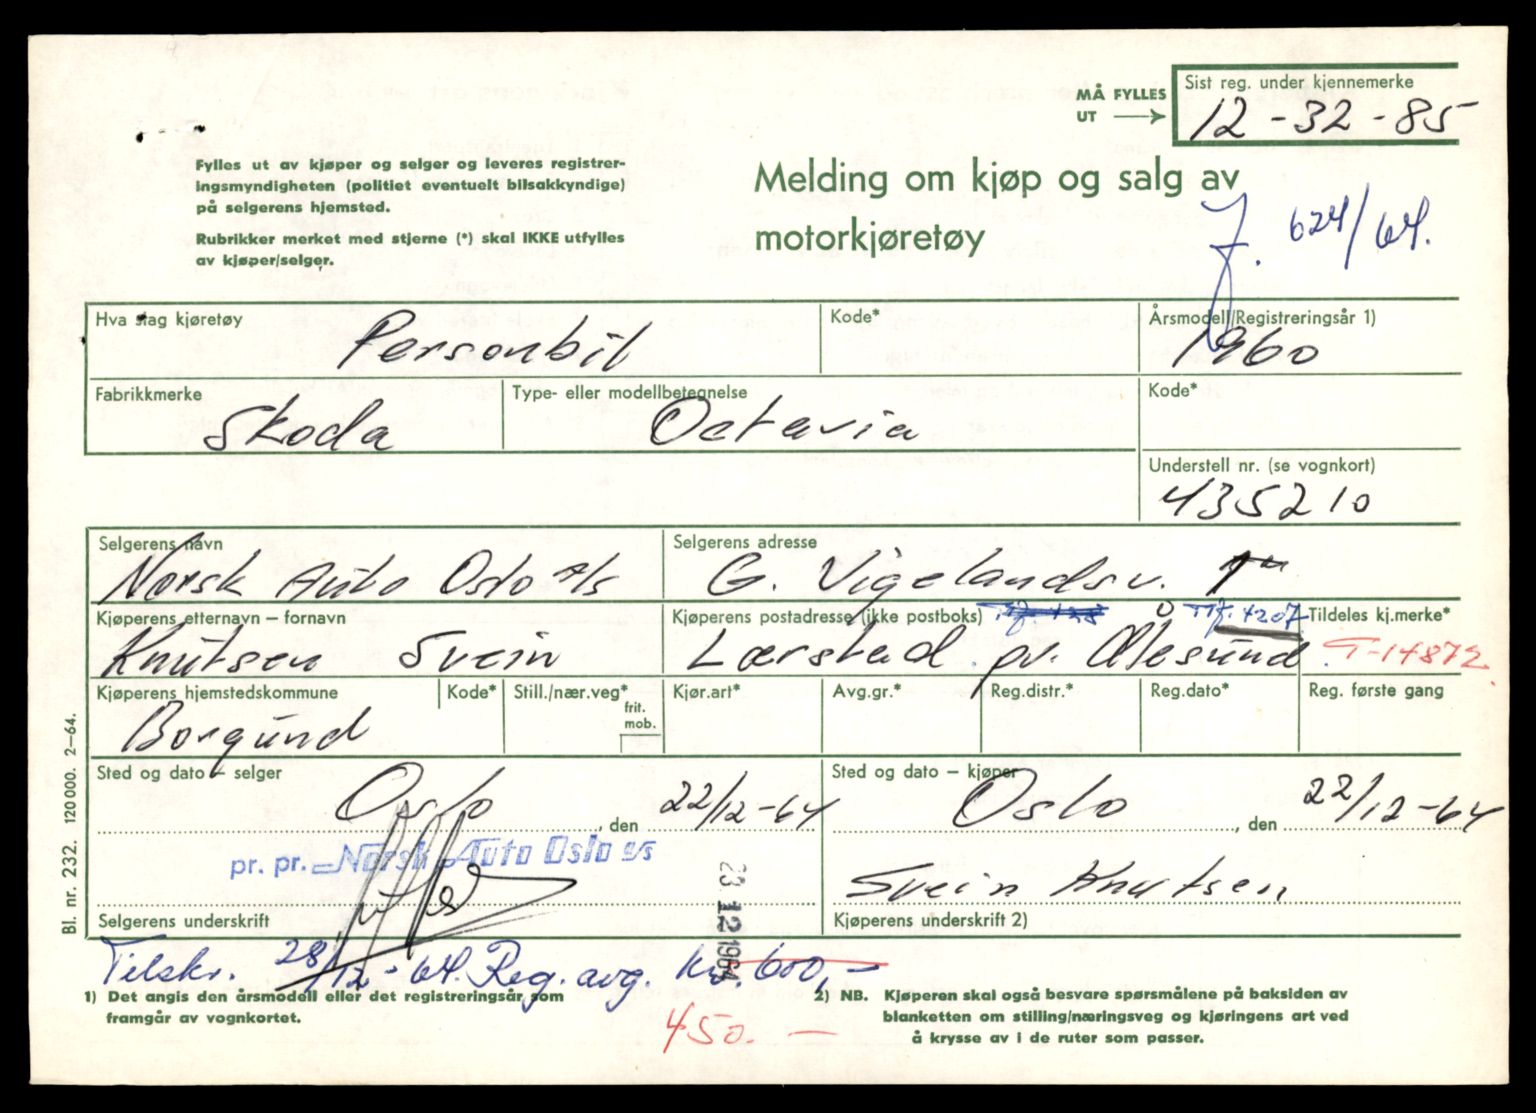 MÅ FYLLES UT →
Sist reg. under kjennemerke
12-32-85
Fylles ut av kjøper og selger og leveres registrer-
ingsmyndigheten (politiet eventuelt bilsakkyndige)
på selgerens hjemsted.
Rubrikker merket med stjerne (*) skal IKKE utfylles
av kjøper/selger.
Melding om kjøp og salg av
motorkjøretøy
J. 624/64.
Hva slag kjøretøy
Personbil
Kode*
Årsmodell/Registreringsår 1)
1960
Fabrikkmerke
Skoda
Type- eller modellbetegnelse
Octavia
Kode*
Understell nr. (se vognkort)
435210
Selgerens navn
Norsk Auto Oslo A/s
Selgerens adresse
G. Vigelandsv.
Kjøperens etternavn – fornavn
Knutsen Svein
Kjøperens postadresse (ikke postboks)
Tlf. 4207
Lærstad pr. Ålesund
Tildeles kj.merke*
T-14872.
Kjøperens hjemstedskommune
Borgund
Kode*
Still./nær.veg*
frit.
mob.
Kjør.art*
Avg.gr.*
Reg.distr.*
Reg.dato*
Reg. første gang
Sted og dato – selger
Oslo, den 22/12-64
Sted og dato – kjøper
Oslo, den 22/12-64
pr. pr. Norsk Auto Oslo A/S
23.12.1964
Svein Knutsen
Selgerens underskrift
Kjøperens underskrift 2)
Bl. nr. 232. 120000. 2–64.
Tilskr. 28/12-64. Reg. avg. kr. 600,-
1) Det angis den årsmodell eller det registreringsår som
framgår av vognkortet.
450. —
2) NB. Kjøperen skal også besvare spørsmålene på baksiden av
blanketten om stilling/næringsveg og kjøringens art ved
å krysse av i de ruter som passer.